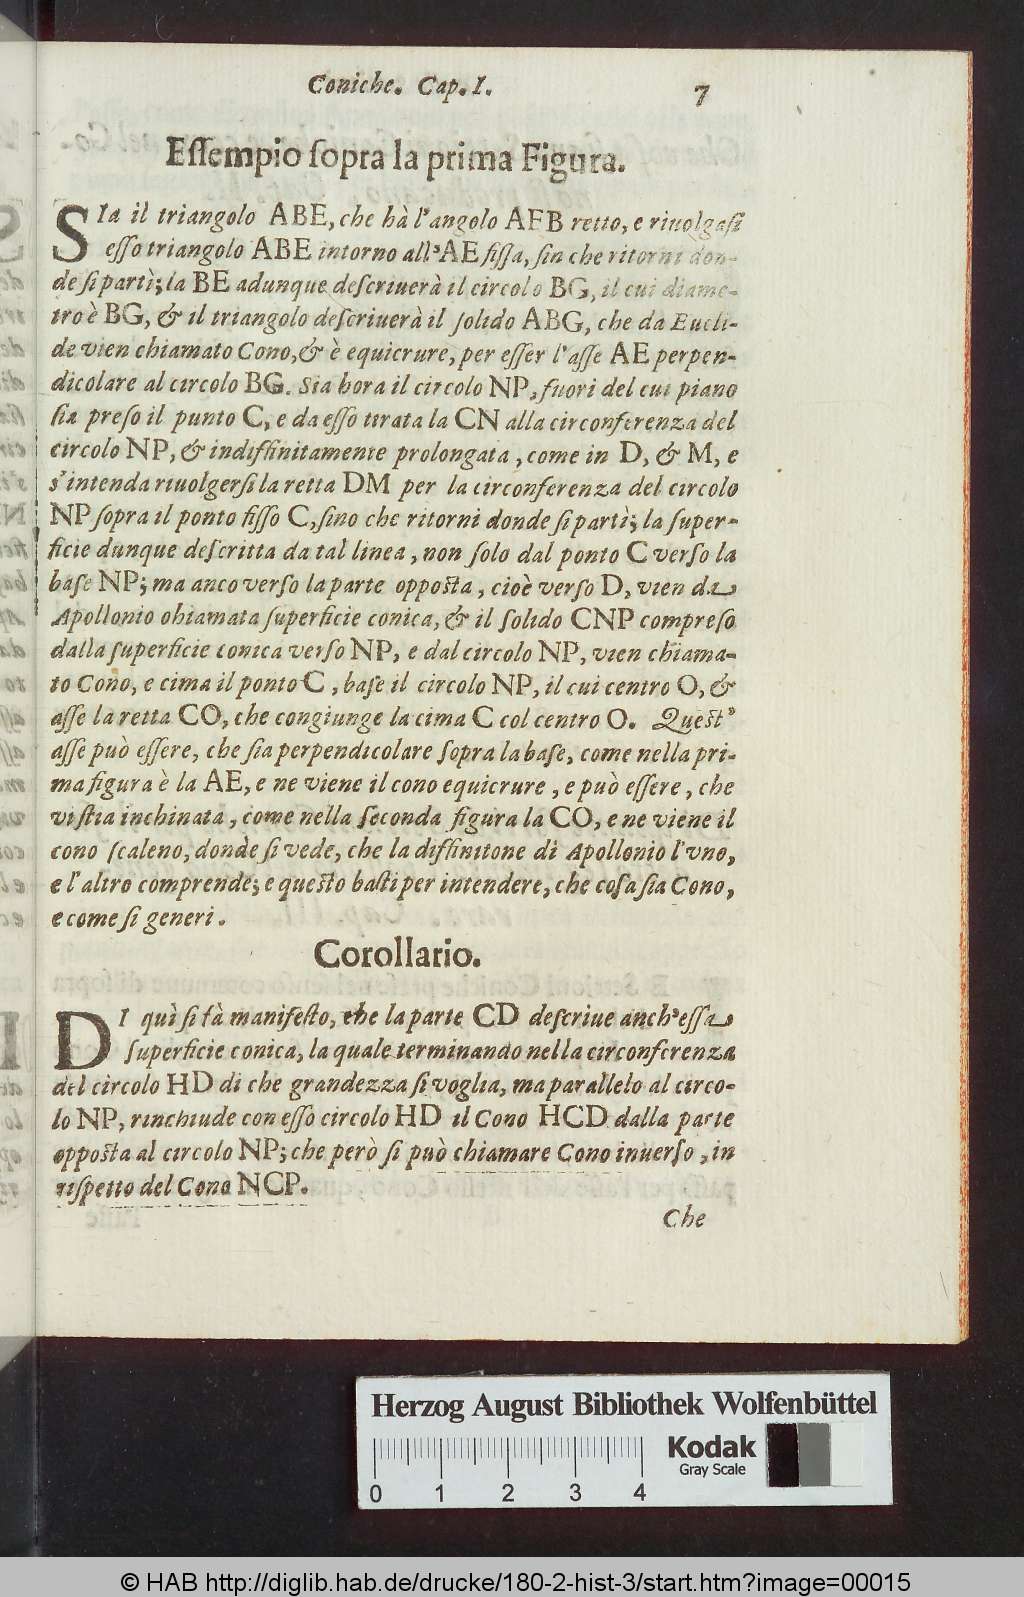 Coniche. Cap. I. 7
Eſſempio ſopra la prima Figura.
SIa il triangolo ABE, che hà l'angolo AEB retto, e riuolgaſi
eſſo triangolo ABE intorno all'AE fiſſa, ſin che ritorni don-
de ſi partì; la BE adunque deſcriuerà il circolo BG, il cui diame-
tro è BG, & il triangolo deſcriuerà il ſolido ABG, che da Eucli-
de vien chiamato Cono, & è equicrure, per eſſer l'aſſe AE perpen-
dicolare al circolo BG. Sia hora il circolo NP, fuori del cui piano
ſia preſo il punto C, e da eſſo tirata la CN alla circonferenza del
circolo NP, & indiffinitamente prolongata, come in D, & M, e
s'intenda riuolgerſi la retta DM per la circonferenza del circolo
NP ſopra il ponto fiſſo C, ſino che ritorni donde ſi partì; la ſuper-
ficie dunque deſcritta da tal linea, non ſolo dal ponto C verſo la
baſe NP; ma anco verſo la parte oppoſta, cioè verſo D, vien da
Apollonio ohiamata ſuperficie conica, & il ſolido CNP compreſo
dalla ſuperficie conica verſo NP, e dal circolo NP, vien chiama-
to Cono, e cima il ponto C, baſe il circolo NP, il cui centro O, &
aſſe la retta CO, che congiunge la cima C col centro O. Queſt'
aſſe può eſſere, che ſia perpendicolare ſopra la baſe, come nella pri-
ma figura è la AE, e ne viene il cono equicrure, e può eſſere, che
vi ſtia inchinata, come nella ſeconda figura la CO, e ne viene il
cono ſcaleno, donde ſi vede, che la diffinitone di Apollonio l'vno,
e l'altro comprende; e queſto baſti per intendere, che coſa ſia Cono,
e come ſi generi.
Corollario.
DI quì ſi fà manifeſto, che la parte CD deſcriue anch'eſſa
ſuperficie conica, la quale terminando nella circonferenza
del circolo HD di che grandezza ſi voglia, ma parallelo al circo-
lo NP, rinchiude con eſſo circolo HD il Cono HCD dalla parte
oppoſta al circolo NP; che però ſi può chiamare Cono inuerſo, in
riſpetto del Cono NCP.
Che
Herzog August Bibliothek Wolfenbüttel
Kodak
Gray Scale
0 1 2 3 4
© HAB http://diglib.hab.de/drucke/180-2-hist-3/start.htm?image=00015